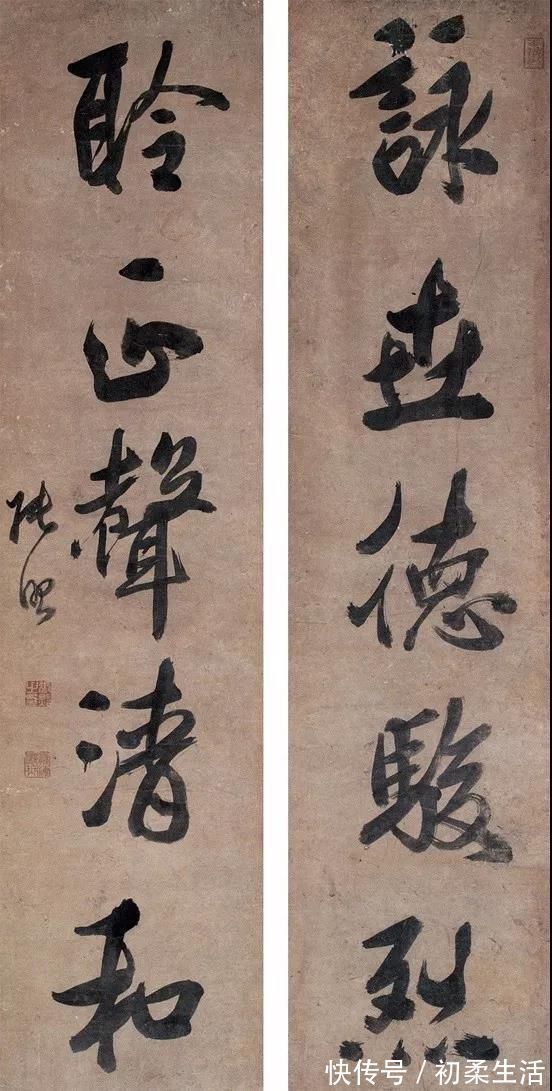 詠世德駿烈
聆正聲清和
張照
快传号/初柔生活